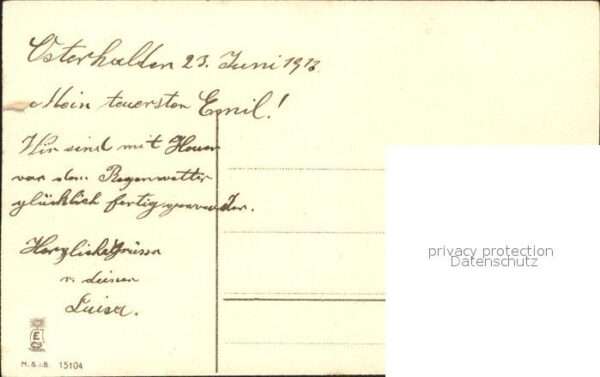 Osterhalden 23. Juni 1913
Mein teuersten Emil!
Wir sind mit Heuen
vor dem Regenwetter
glücklich fertig geworden.
Herzliche Grüsse
v. deiner
Luisa.
privacy protection
Datenschutz
E
M. S. i. B. 15104